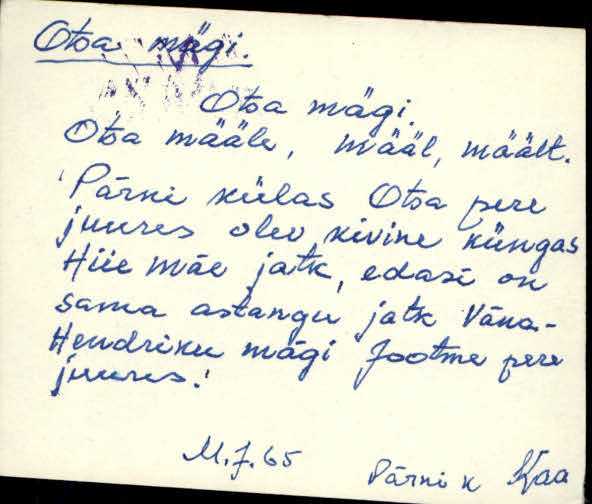 Otsa mägi.
Otsa mägi.
Otsa määle, määl, mäält.
'Pärni külas Otsa pere
juures olev kivine küngas
Hiie mäe jatk, edasi on
sama astangu jatk Väna-
Hendriku mägi Jootme pere
juures.'
M.J.65
Pärni k Kaa